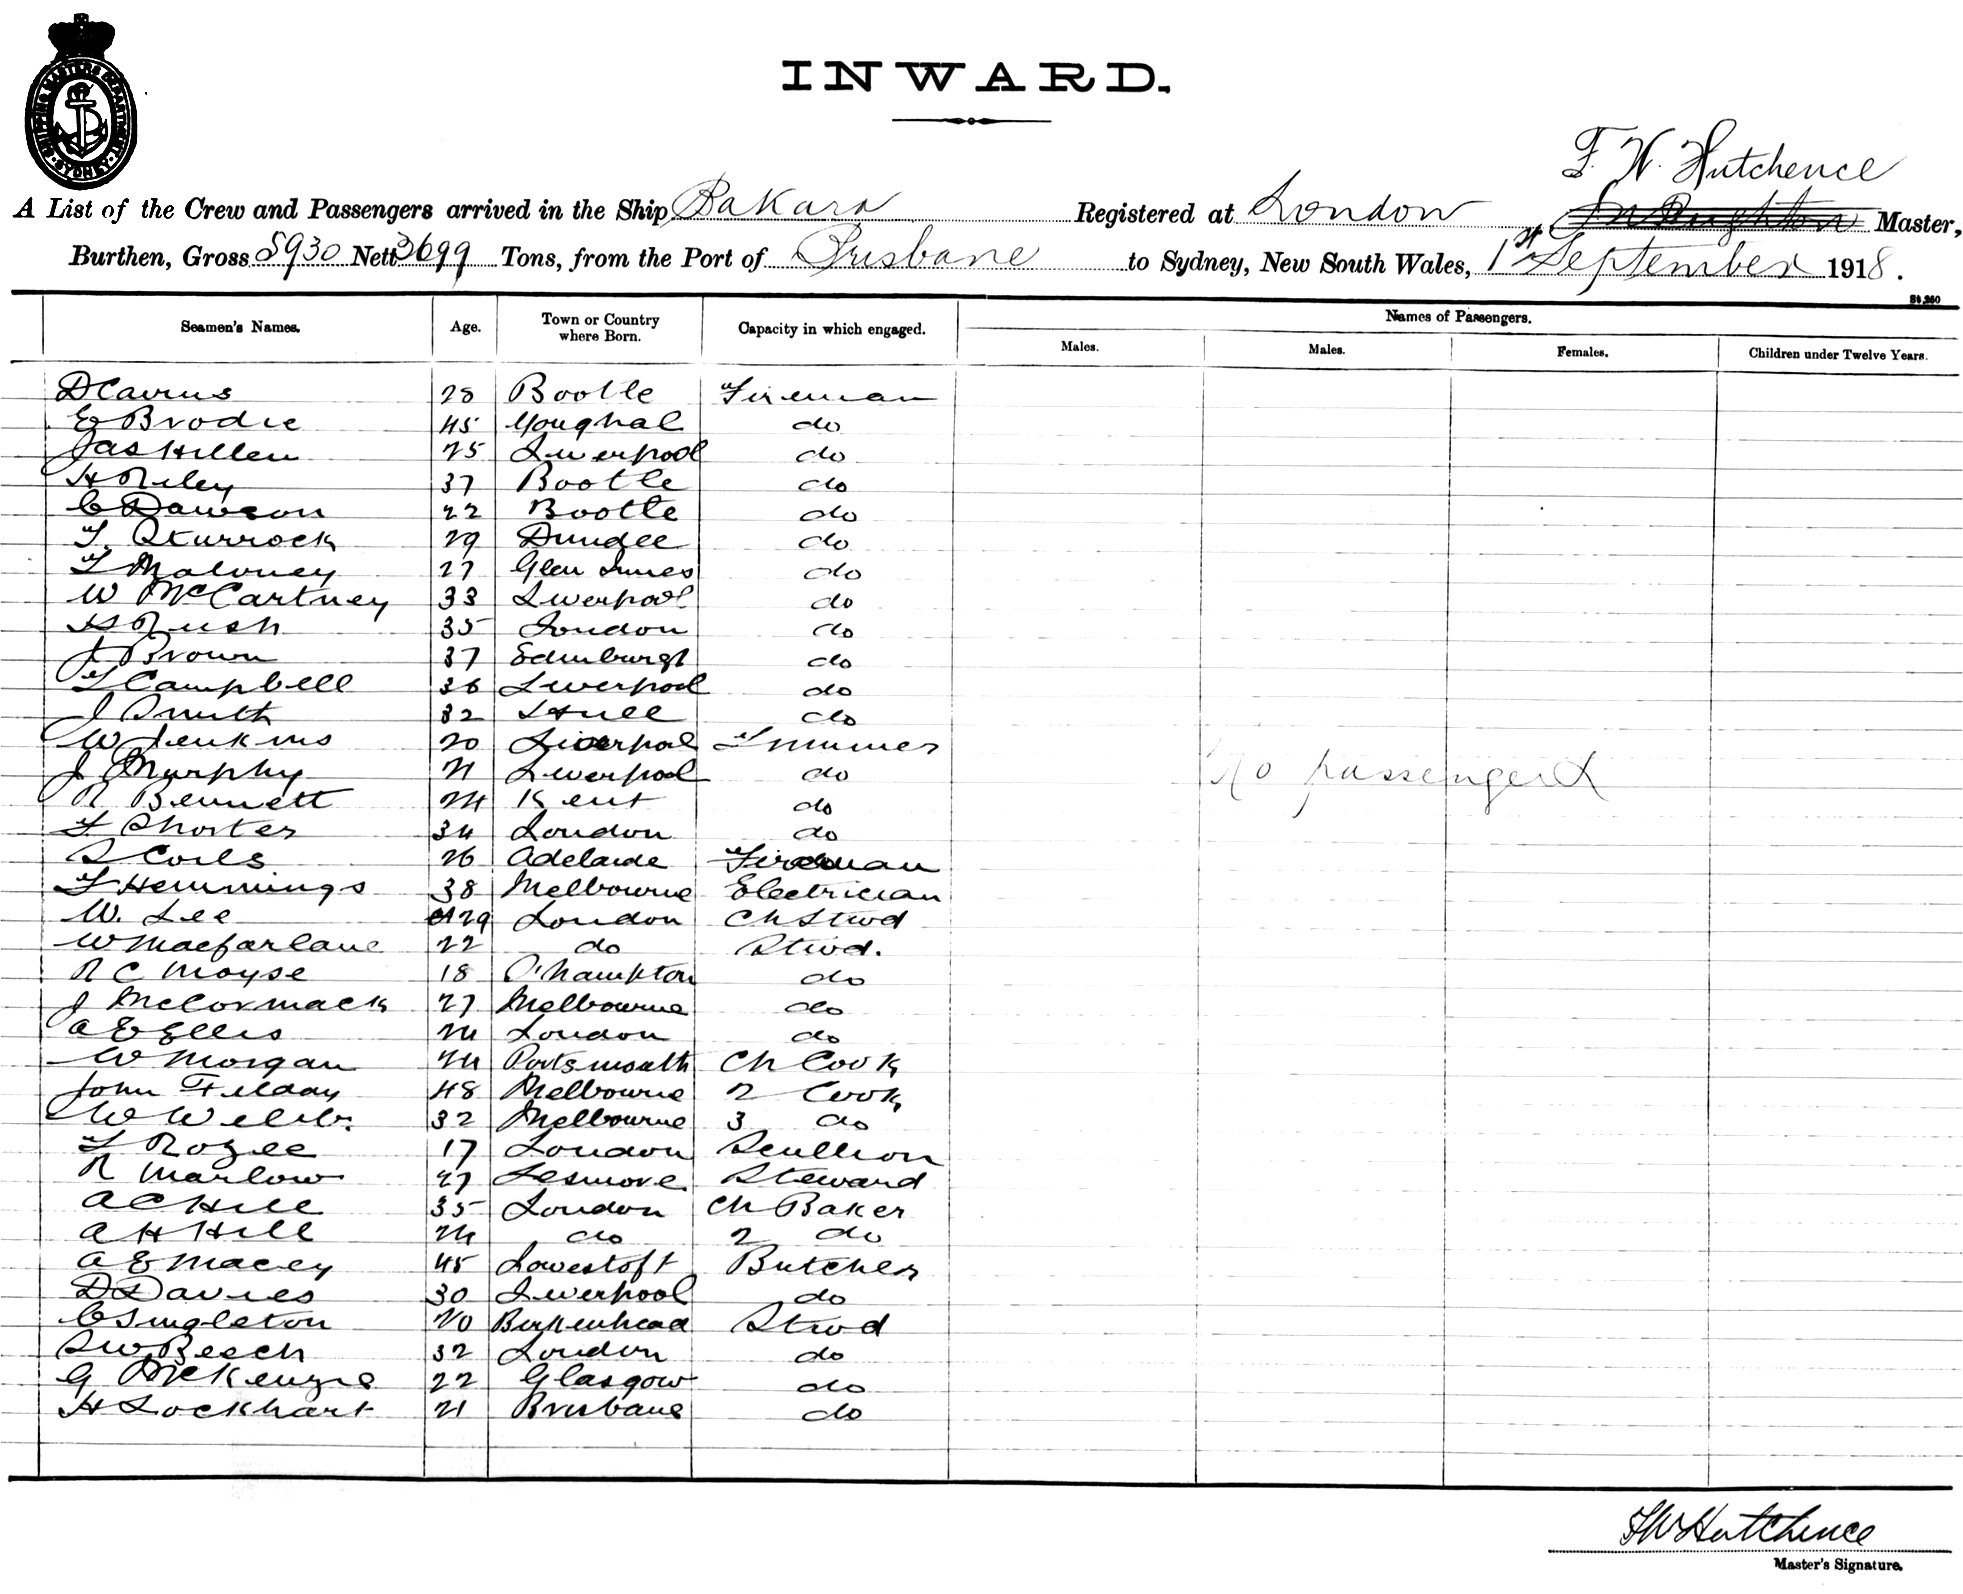 SHIPPING MASTERS DEPARTMENT. SYDNEY.
INWARD.
F. W. Hutchence
A List of the Crew and Passengers arrived in the Ship Bakara Registered at London Master,
Burthen, Gross 5930 Nett 3699 Tons, from the Port of Brisbane to Sydney, New South Wales, 1st September 1918.
Seamen's Names. Age. Town or Country where Born. Capacity in which engaged. Names of Passengers.
Males. Males. Females. Children under Twelve Years.
D Cairns 28 Bootle Fireman
E Brodie 45 Youghal do
Jas Hillen 25 Liverpool do
H Riley 37 Bootle do
C Dawson 22 Bootle do
T. Sturrock 29 Dundee do
T Maloney 27 Glen Innes do
W McCartney 33 Liverpool do
H Rush 35 London do
J Brown 37 Edinburgh do
T Campbell 36 Liverpool do
J Smith 32 Hull do
W Jenkins 20 Liverpool Trimmer
J Murphy 21 Liverpool do
No passengers
R Bennett 24 Kent do
T Shorter 34 London do
S Coils 26 Adelaide Fireman
T Hemmings 38 Melbourne Electrician
W. Lee 29 London Ch Stwd
W Macfarlane 22 do Stwd.
R C Moyse 18 S'hampton do
J McCormack 27 Melbourne do
A E Ellis 24 London do
W Morgan 24 Portsmouth Ch Cook
John 48 Melbourne 2 Cook
W Webb. 32 Melbourne 3 do
T Rozee 17 London Scullion
R Marlow 27 Lesmore Steward
A C Hill 35 London Ch Baker
A H Hill 24 do 2 do
A E Macey 45 Lowestoft Butcher
D Davies 30 Liverpool do
C Singleton 20 Birkenhead Stwd
S W Beech 32 London do
G McKenzie 22 Glasgow do
H Lockhart 21 Brisbane do
F W Hutchence
Master's Signature.